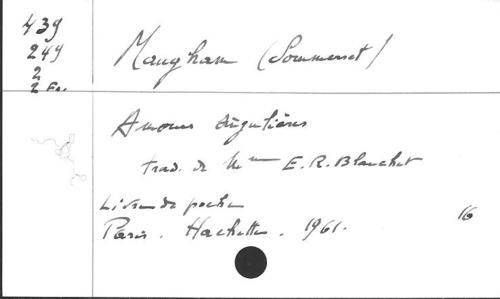 439
249
2
2 Ex.
Maugham (Sommerset)
Amours singulières
trad. de Mme E.R. Blanchet
Livre de poche
Paris. Hachette. 1961.
16